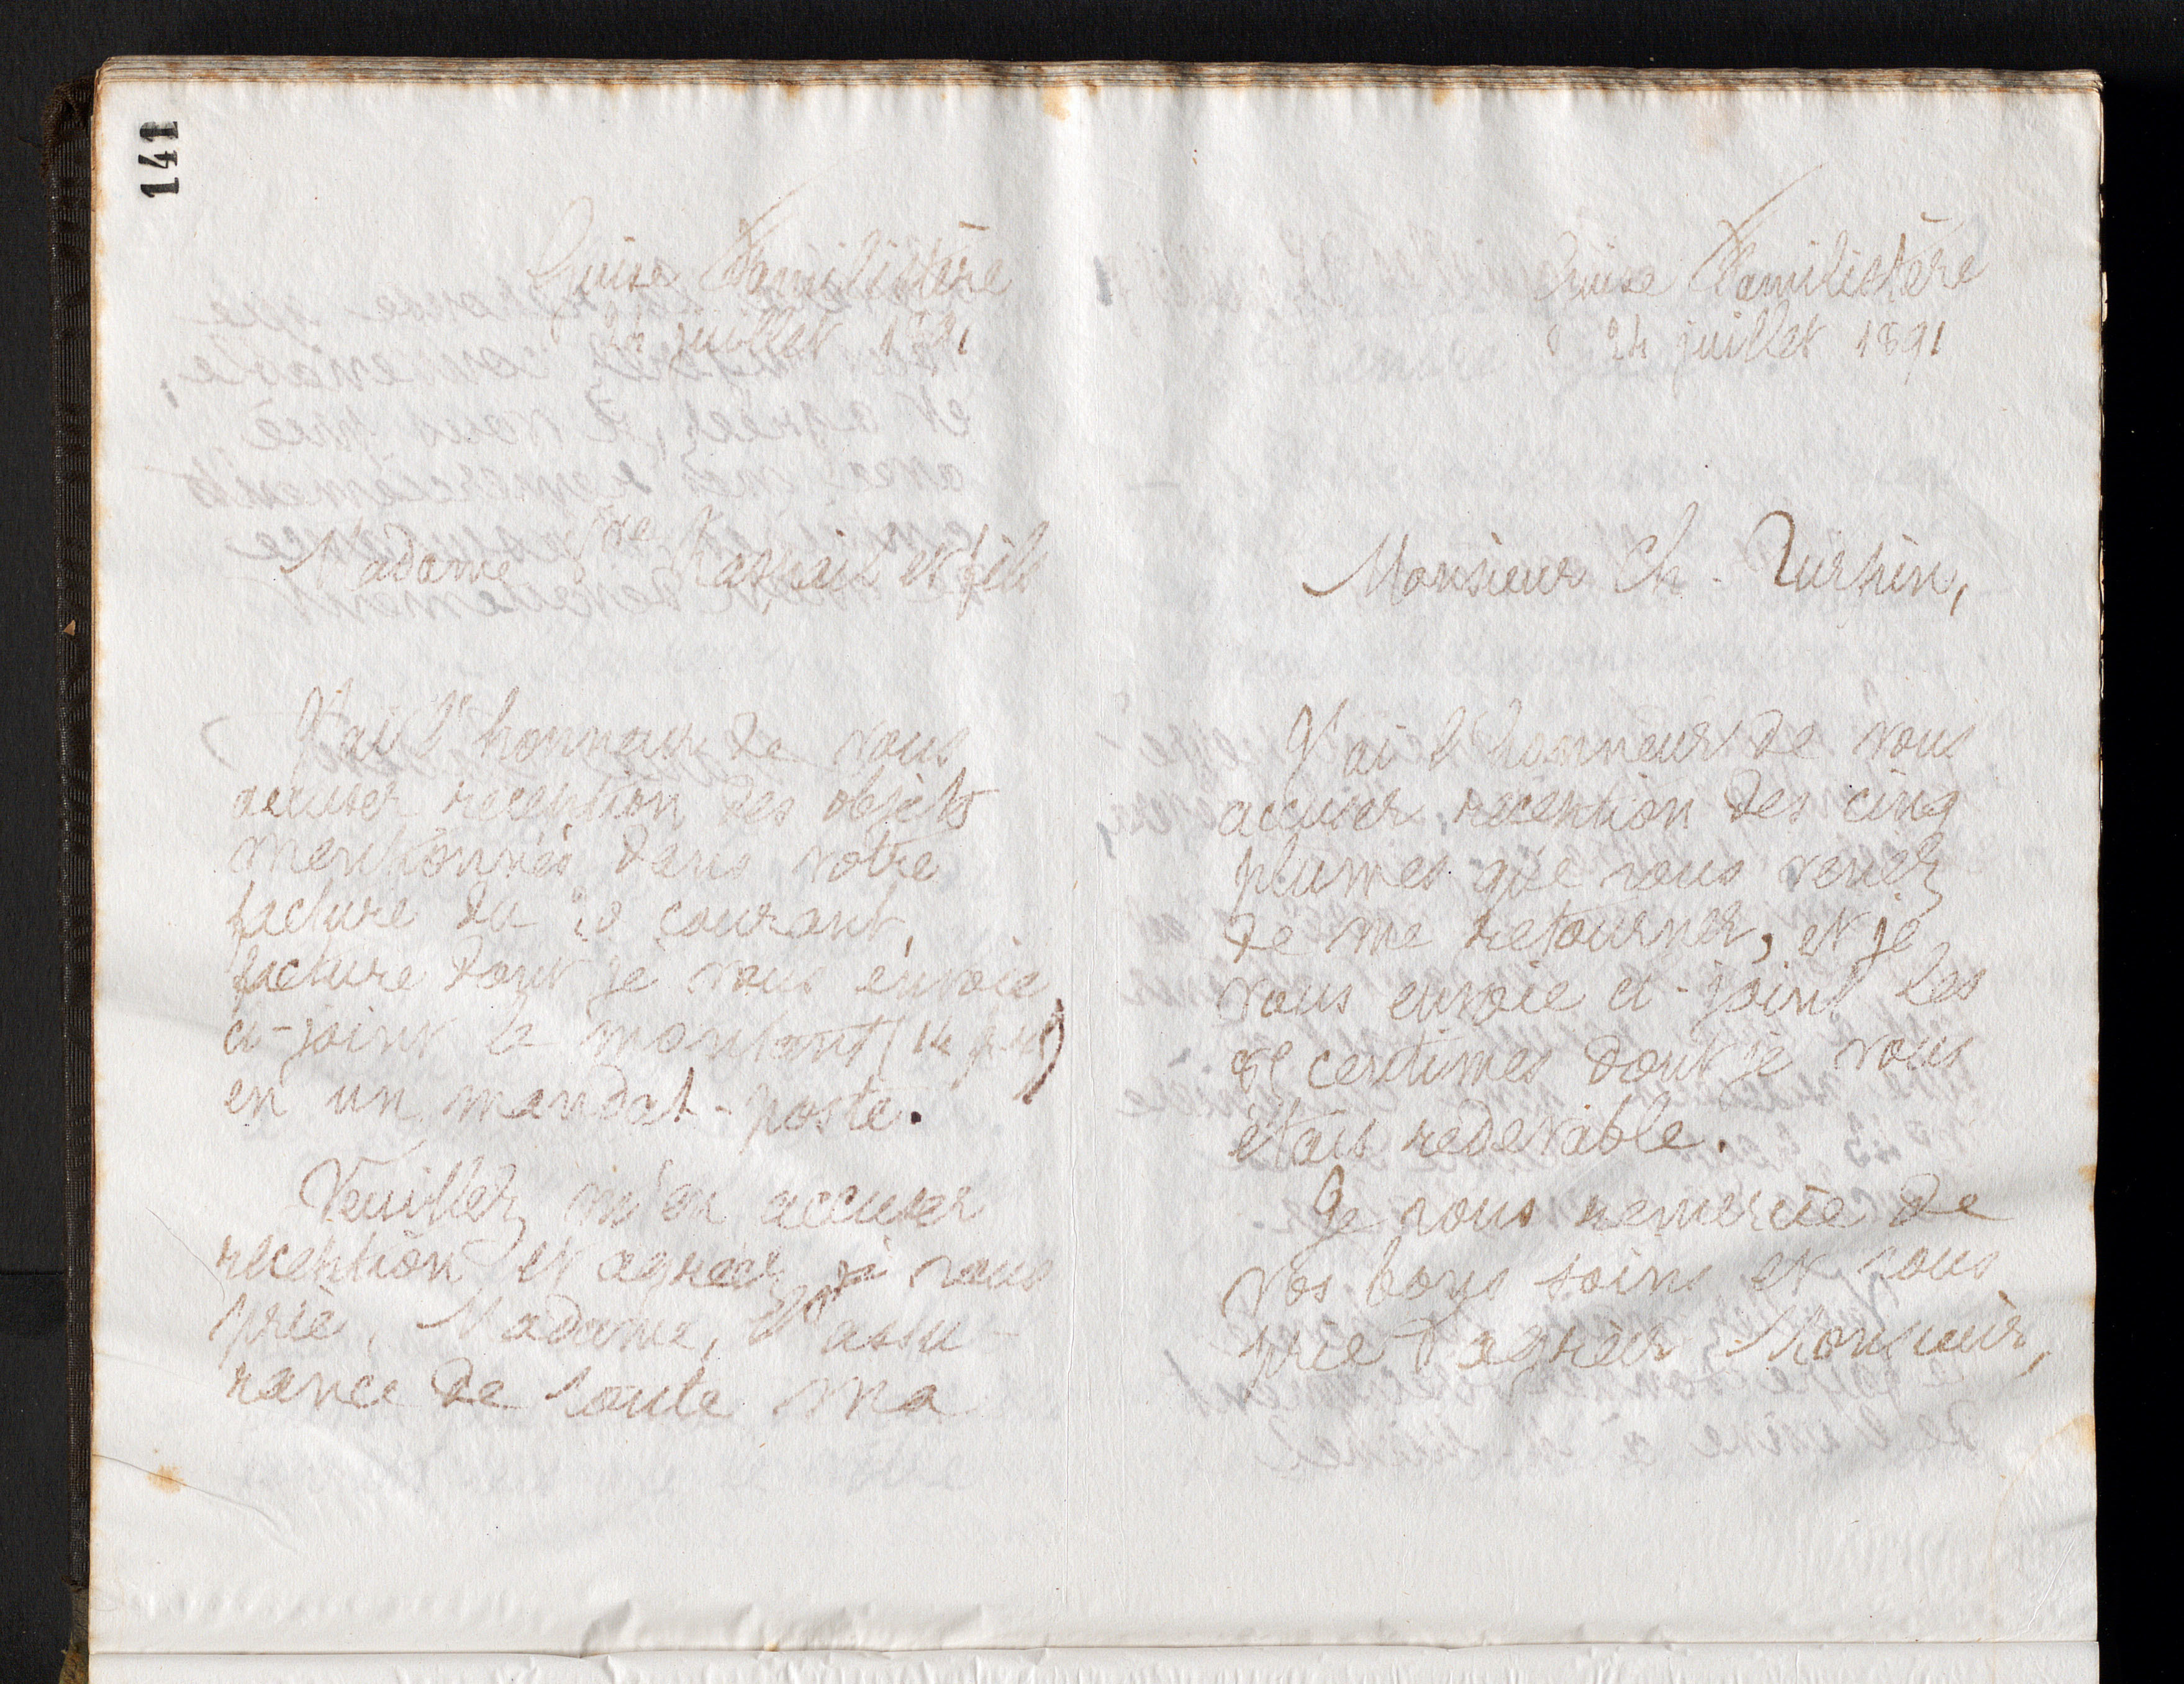 141
Guise Familistère
24 juillet 1891
Madame Vve Raspail et fils
J'ai l'honneur de vous
accuser réception des objets
mentionnés dans votre
facture du 20 courant,
facture dont je vous envoie
ci-joint le montant (14 f. 45)
en un mandat-poste.
Veuillez m'en accuser
réception et agréer, je vous
prie, Madame, l'assu-
rance de toute ma
Guise Familistère
24 juillet 1891
Monsieur Ch. Turpin,
J'ai l'honneur de vous
accuser réception des cinq
plumes que vous venez
de me retourner, et je
vous envoie ci-joint les
centimes dont je vous
étais redevable.
Je vous remercie de
vos bons soins et vous
prie d'agréer Monsieur,